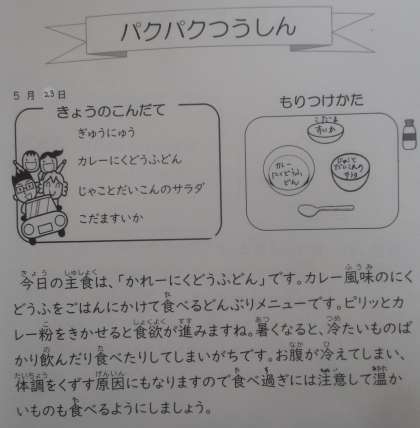 パクパクつうしん
5月23日
きょうのこんだて
ぎゅうにゅう
カレーにくどうふどん
じゃことだいこんのサラダ
こだますいか
もりつけかた
こだま
すいか
カレー
にくどうふ
どん
じゃこと
だいこんの
サラダ
今日の主食は、「かれーにくどうふどん」です。カレー風味のにく
どうふをごはんにかけて食べるどんぶりメニューです。ピリッとカ
レー粉をきかせると食欲が進みますね。暑くなると、冷たいものば
かり飲んだり食べたりしてしまいがちです。お腹が冷えてしまい、
体調をくずす原因にもなりますので食べ過ぎには注意して温か
いものも食べるようにしましょう。